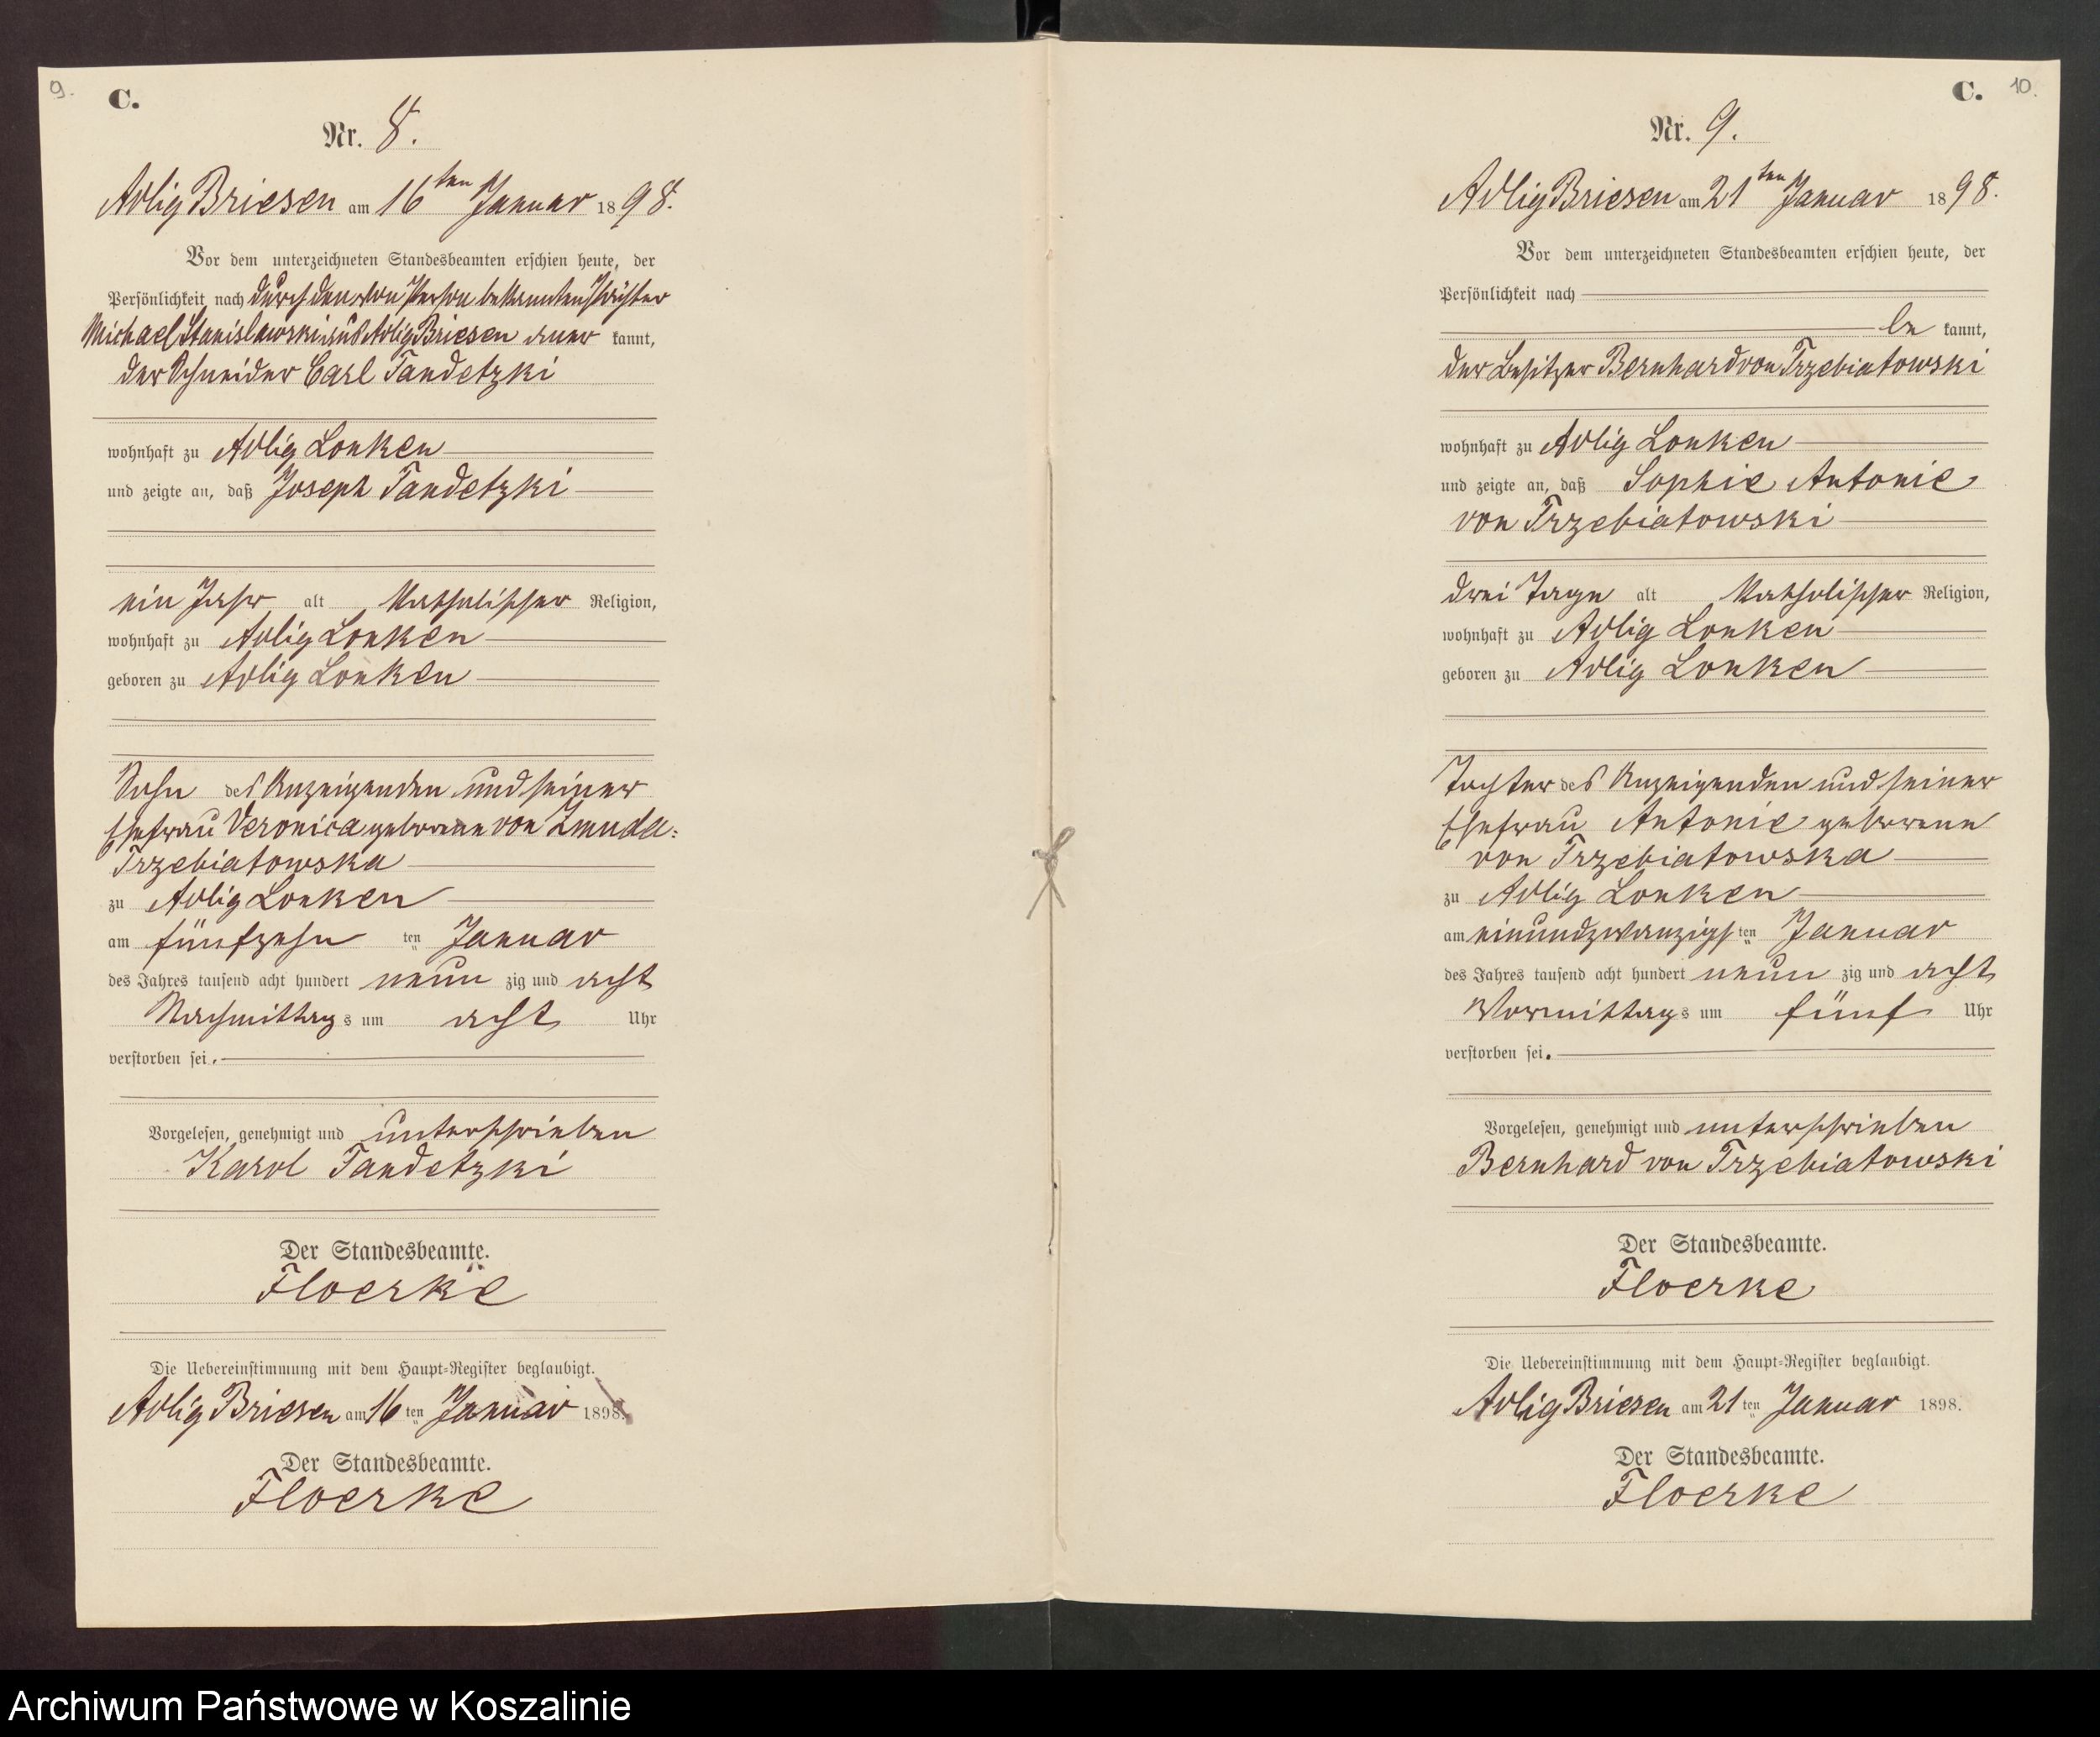 9.
C.
Nr. 8.
Adlig Briesen am 16ten Januar 1898.
Vor dem unterzeichneten Standesbeamten erschien heute, der
Persönlichkeit nach durch den von Person bekannten
Michael Stanislawski aus Adlig Briesen aner kannt,
der Schneider Carl Tandetzki
wohnhaft zu Adlig Lonken
und zeigte an, daß Joseph Tandetzki
ein Jahr alt katholischer Religion,
wohnhaft zu Adlig Lonken
geboren zu Adlig Lonken
Sohn des Anzeigenden und seiner
Ehefrau Veronica geborene von Zmuda-
Trzebiatowska
zu Adlig Lonken
am fünfzehn ten Januar
des Jahres tausend acht hundert neun zig und acht
Nachmittags um acht Uhr
verstorben sei.
Vorgelesen, genehmigt und unterschrieben
Karol Tandetzki
Der Standesbeamte.
Floerke
Die Uebereinstimmung mit dem Haupt-Register beglaubigt.
Adlig Briesen am 16ten Januar 1898.
Der Standesbeamte.
Floerke
C.
10.
Nr. 9.
Adlig Briesen am 21ten Januar 1898.
Vor dem unterzeichneten Standesbeamten erschien heute, der
Persönlichkeit nach
be kannt,
der Besitzer Bernhard von Trzebiatowski
wohnhaft zu Adlig Lonken
und zeigte an, daß Sophie Antonie
von Trzebiatowski
drei Tage alt katholischer Religion,
wohnhaft zu Adlig Lonken
geboren zu Adlig Lonken
Tochter des Anzeigenden und seiner
Ehefrau Antonie geborene
von Trzebiatowska
zu Adlig Lonken
am einundzwanzigs ten Januar
des Jahres tausend acht hundert neun zig und acht
Vormittags um fünf Uhr
verstorben sei.
Vorgelesen, genehmigt und unterschrieben
Bernhard von Trzebiatowski
Der Standesbeamte.
Floerke
Die Uebereinstimmung mit dem Haupt-Register beglaubigt.
Adlig Briesen am 21ten Januar 1898.
Der Standesbeamte.
Floerke
Archiwum Państwowe w Koszalinie